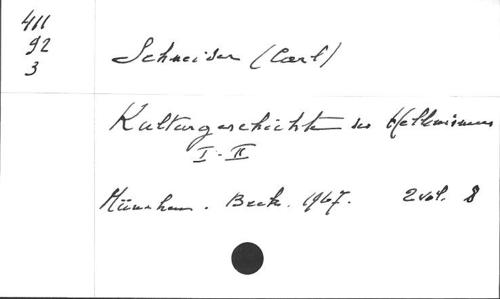 411
92
3
Schneider (Carl)
Kulturgeschichte des Hellenismus
I-II
München. Beck. 1967. 2 vol. 8